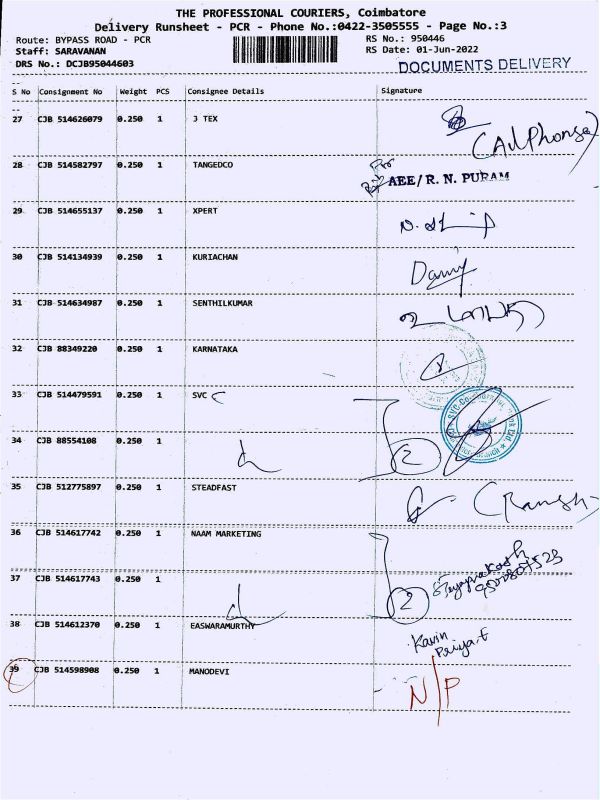 THE PROFESSIONAL COURIERS, Coimbatore
Delivery Runsheet - PCR - Phone No.:0422-3505555 - Page No.:3
Route: BYPASS ROAD - PCR RS No.: 950446
Staff: SARAVANAN RS Date: 01-Jun-2022
DRS No.: DCJB95044603 DOCUMENTS DELIVERY
S No Consignment No Weight PCS Consignee Details Signature
27 CJB 514626079 0.250 1 J TEX
(Alphonsa)
28 CJB 514582797 0.250 1 TANGEDCO
For
AEE/R. N. PURAM
29 CJB 514655137 0.250 1 XPERT
30 CJB 514134939 0.250 1 KURIACHAN
31 CJB 514634987 0.250 1 SENTHILKUMAR
32 CJB 88349220 0.250 1 KARNATAKA
33 CJB 514479591 0.250 1 SVC C
34 CJB 88554108 0.250 1 2
35 CJB 512775897 0.250 1 STEADFAST
36 CJB 514617742 0.250 1 NAAM MARKETING
37 CJB 514617743 0.250 1 2
38 CJB 514612370 0.250 1 EASWARAMURTHY Kavin
Priya.E
39 CJB 514598908 0.250 1 MANODEVI N/P